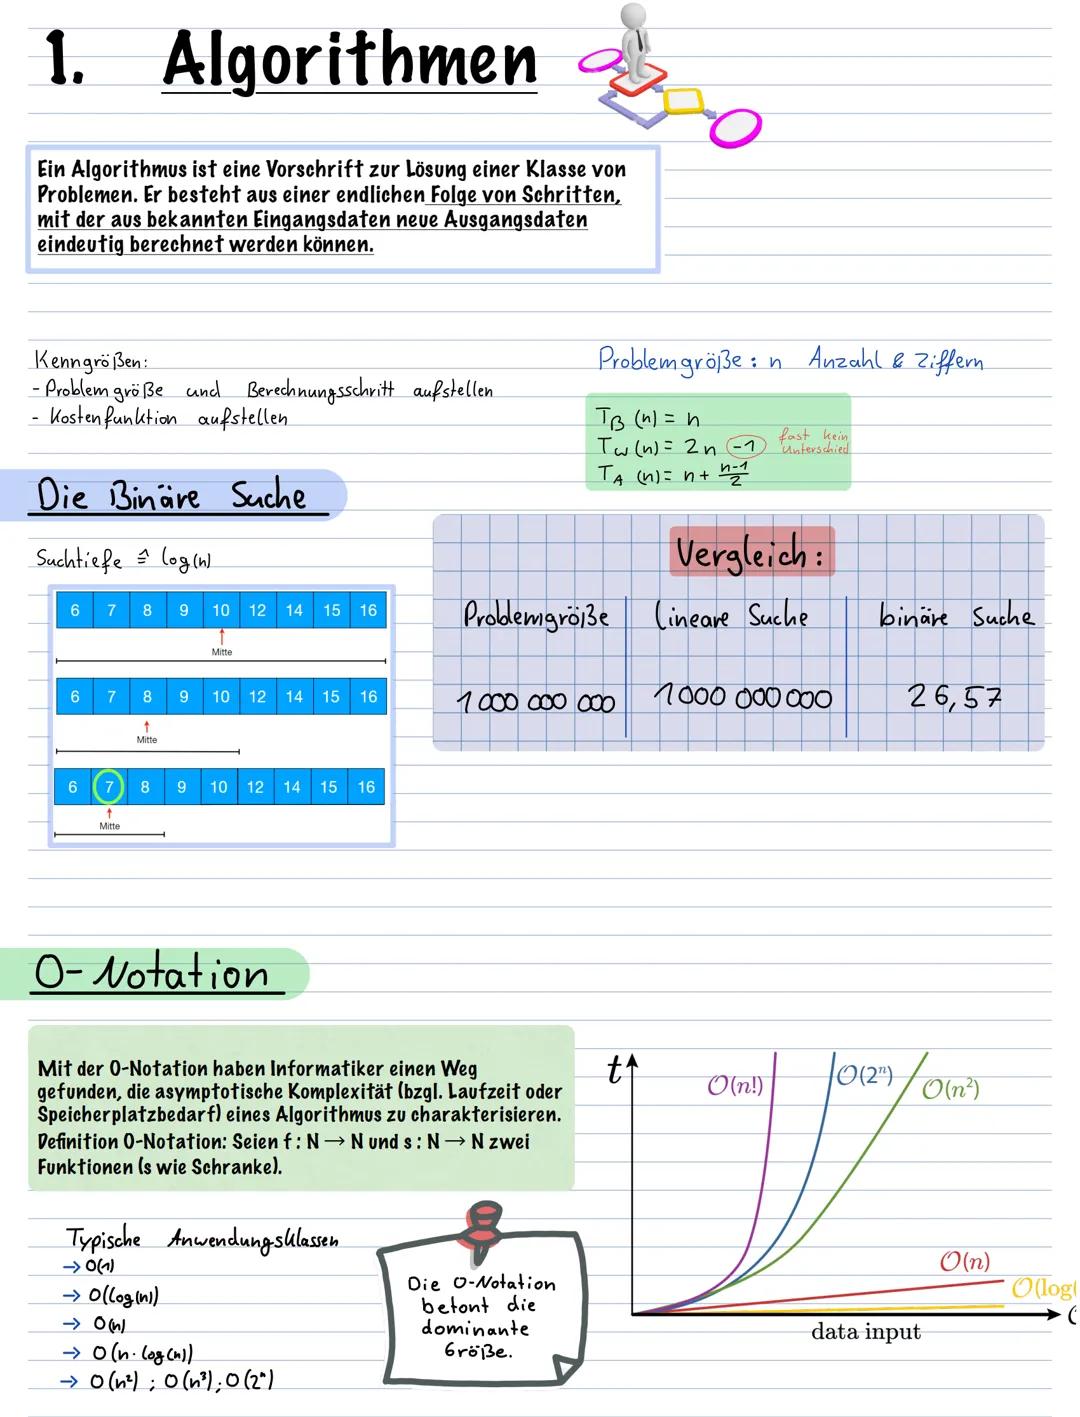 1. Algorithmen
Ein Algorithmus ist eine Vorschrift zur Lösung einer Klasse von
Problemen. Er besteht aus einer endlichen Folge von Schritten,
mit der aus bekannten Eingangsdaten neue Ausgangsdaten
eindeutig berechnet werden können.
Kenngrößen:
- Problemgröße und Berechnungsschritt aufstellen
- Kostenfunktion aufstellen
Problemgröße : n Anzahl & Ziffern
T_B (n) = n
T_W (n) = 2n -1 fast kein
Unterschied
T_A (n) = n + n-1/2
Die Binäre Suche
Suchtiefe ≙ log(n)
6 7 8 9 10 12 14 15 16
Mitte
6 7 8 9 10 12 14 15 16
Mitte
6 7 8 9 10 12 14 15 16
Mitte
Vergleich:
Problemgröße lineare Suche binäre Suche
1 000 000 000 1000 000 000 26,57
O-Notation
Mit der O-Notation haben Informatiker einen Weg
gefunden, die asymptotische Komplexität (bzgl. Laufzeit oder
Speicherplatzbedarf) eines Algorithmus zu charakterisieren.
Definition O-Notation: Seien f : N → N und s : N → N zwei
Funktionen (s wie Schranke).
Typische Anwendungsklassen
→ O(1)
→ O(log(n))
→ O(n)
→ O(n · log(n))
→ O(n²) ; O(n³) ; O(2ⁿ)
Die O-Notation
betont die
dominante
Größe.
t
O(n!)
O(2ⁿ)
O(n²)
O(n)
O(log(
data input